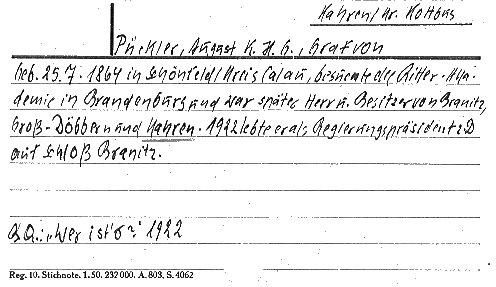 Kahren/Kr. Kottbus
Pückler, August K. H. G., Graf von
Geb. 25.7.1864 in Schönfeld/Kreis Calau, besuchte die Ritter-Aka-
demie in Brandenburg und war später Herr u. Besitzer von Branitz,
Groß-Döbbern und Kahren. 1922 lebte er als Regierungspräsident z.D
auf Schloß Branitz.
Qu.: „Wer ist's?" 1922
Reg. 10. Stichnote. 1. 50. 232000. A. 803. S. 4062